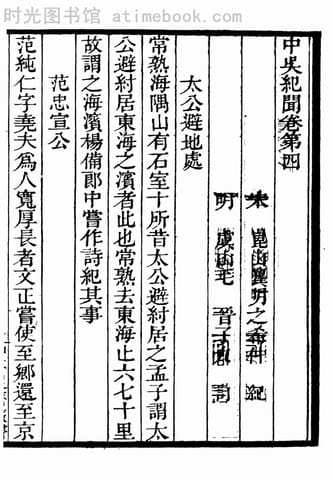 时光图书馆 - atimebook.com
中吳紀聞卷第四
宋 崑山龔明之希仲 紀
明 虞山毛 晉子 訂
太公避地處
常熟海隅山有石室十所昔太公避紂居之孟子謂太
公避紂居東海之濱者此也常熟去東海止六七十里
故謂之海濱楊備郎中嘗作詩紀其事
范忠宣公
范純仁字堯夫爲人寬厚長者文正嘗使至鄉還至京